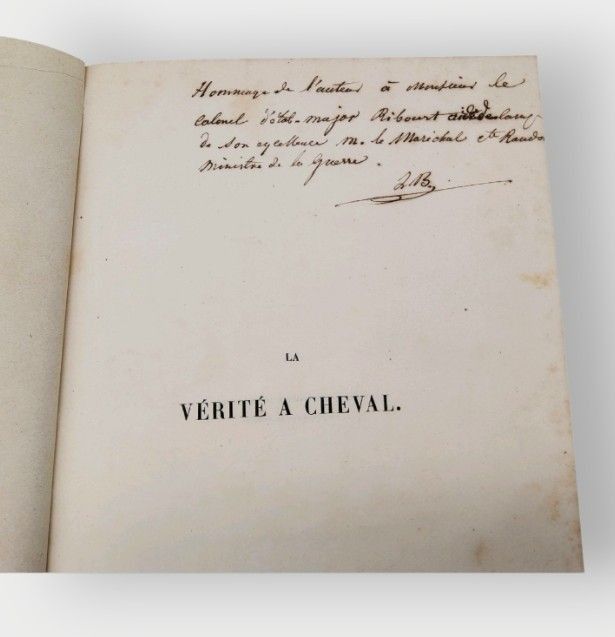 Hommage de l'auteur à Monsieur le
colonel d'état-major Ribourt aide de camp
de son excellence M. le Maréchal cte Randon
Ministre de la Guerre.
L.B.
LA
VÉRITÉ A CHEVAL.